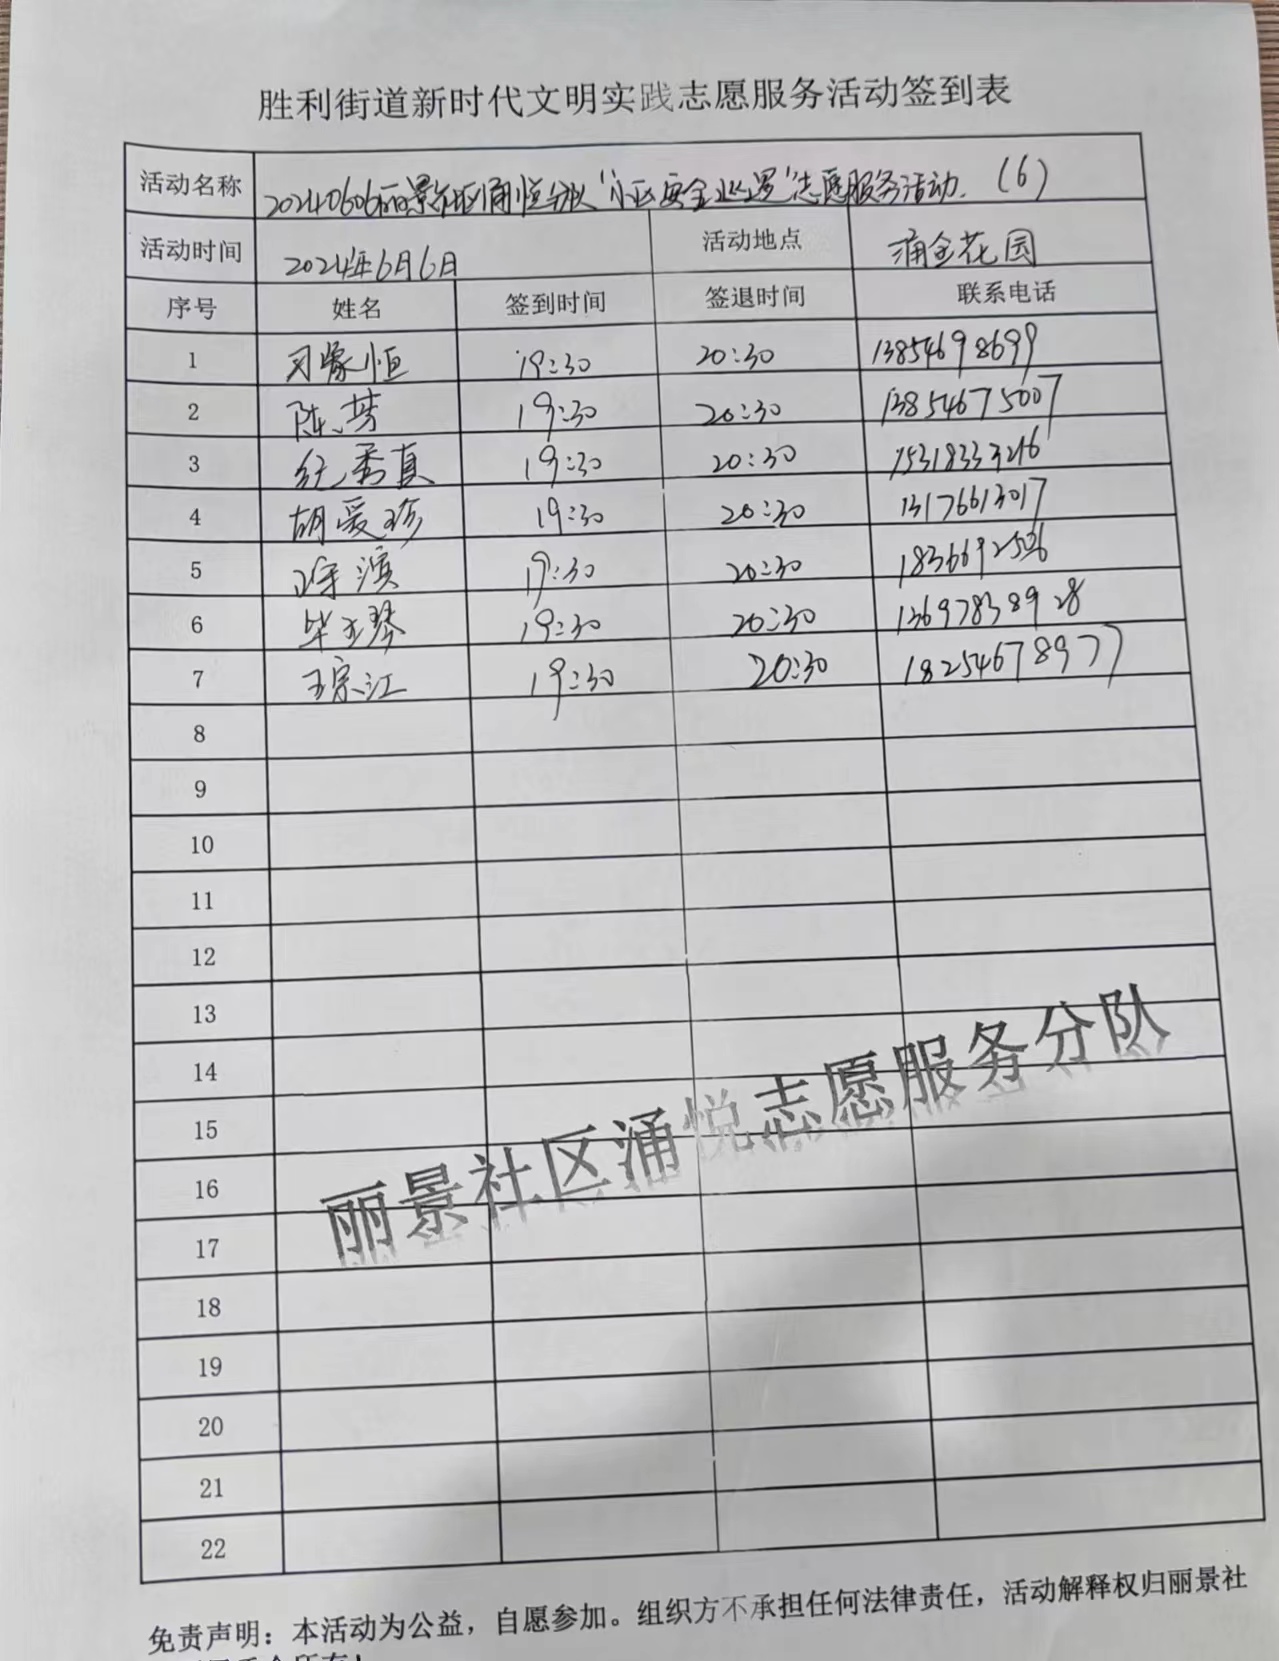 胜利街道新时代文明实践志愿服务活动签到表
活动名称 20240606丽景社区涌恒分队“小区安全巡逻”志愿服务活动.(6)
活动时间 2024年6月6日 活动地点 涌金花园
序号 姓名 签到时间 签退时间 联系电话
1 恒 19:30 20:30 13854698699
2 陈芳 19:30 20:30 13854675007
3 纪秀真 19:30 20:30 15318333246
4 胡爱珍 19:30 20:30 13176613017
5 滨 19:30 20:30
6 毕玉琴 19:30 20:30 13697838928
7 王宗江 19:30 20:30 18254678977
8
9
10
11
12
13
14
15
16
17
18
19
20
21
22
丽景社区涌悦志愿服务分队
免责声明：本活动为公益，自愿参加。组织方不承担任何法律责任，活动解释权归丽景社